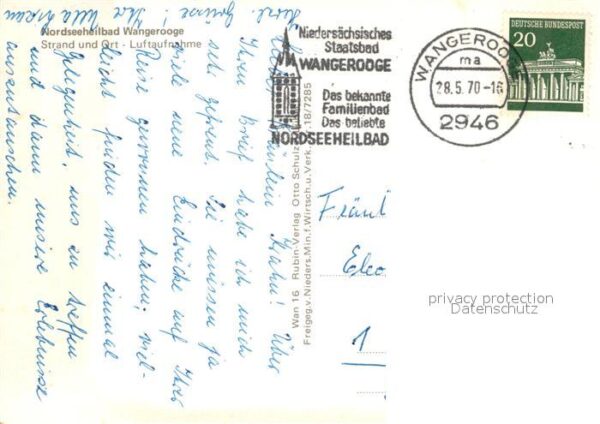 Nordseeheilbad Wangerooge
Strand und Ort - Luftaufnahme
Niedersächsisches
Staatsbad
WANGEROOGE
Das bekannte
Familienbad
Das beliebte
NORDSEEHEILBAD
WANGEROOGE
ma
28.5.70-16
2946
DEUTSCHE BUNDESPOST
20
Wan 16 Rubin-Verlag Otto Schulz
Freigeg. v. Nieders. Min. f. Wirtsch. u. Verk. 18/7285
Fräulein Hahn! Über
Ihren Brief habe ich mich
sehr gefreut. Sie müssen ja
viele neue Eindrücke auf Ihrer
Reise gewonnen haben; viel-
leicht finden wir einmal
Gelegenheit, uns zu treffen
und dann unsere Erlebnisse
auszutauschen.
Herzl. Grüsse! Ihre Ulla
1
privacy protection
Datenschutz